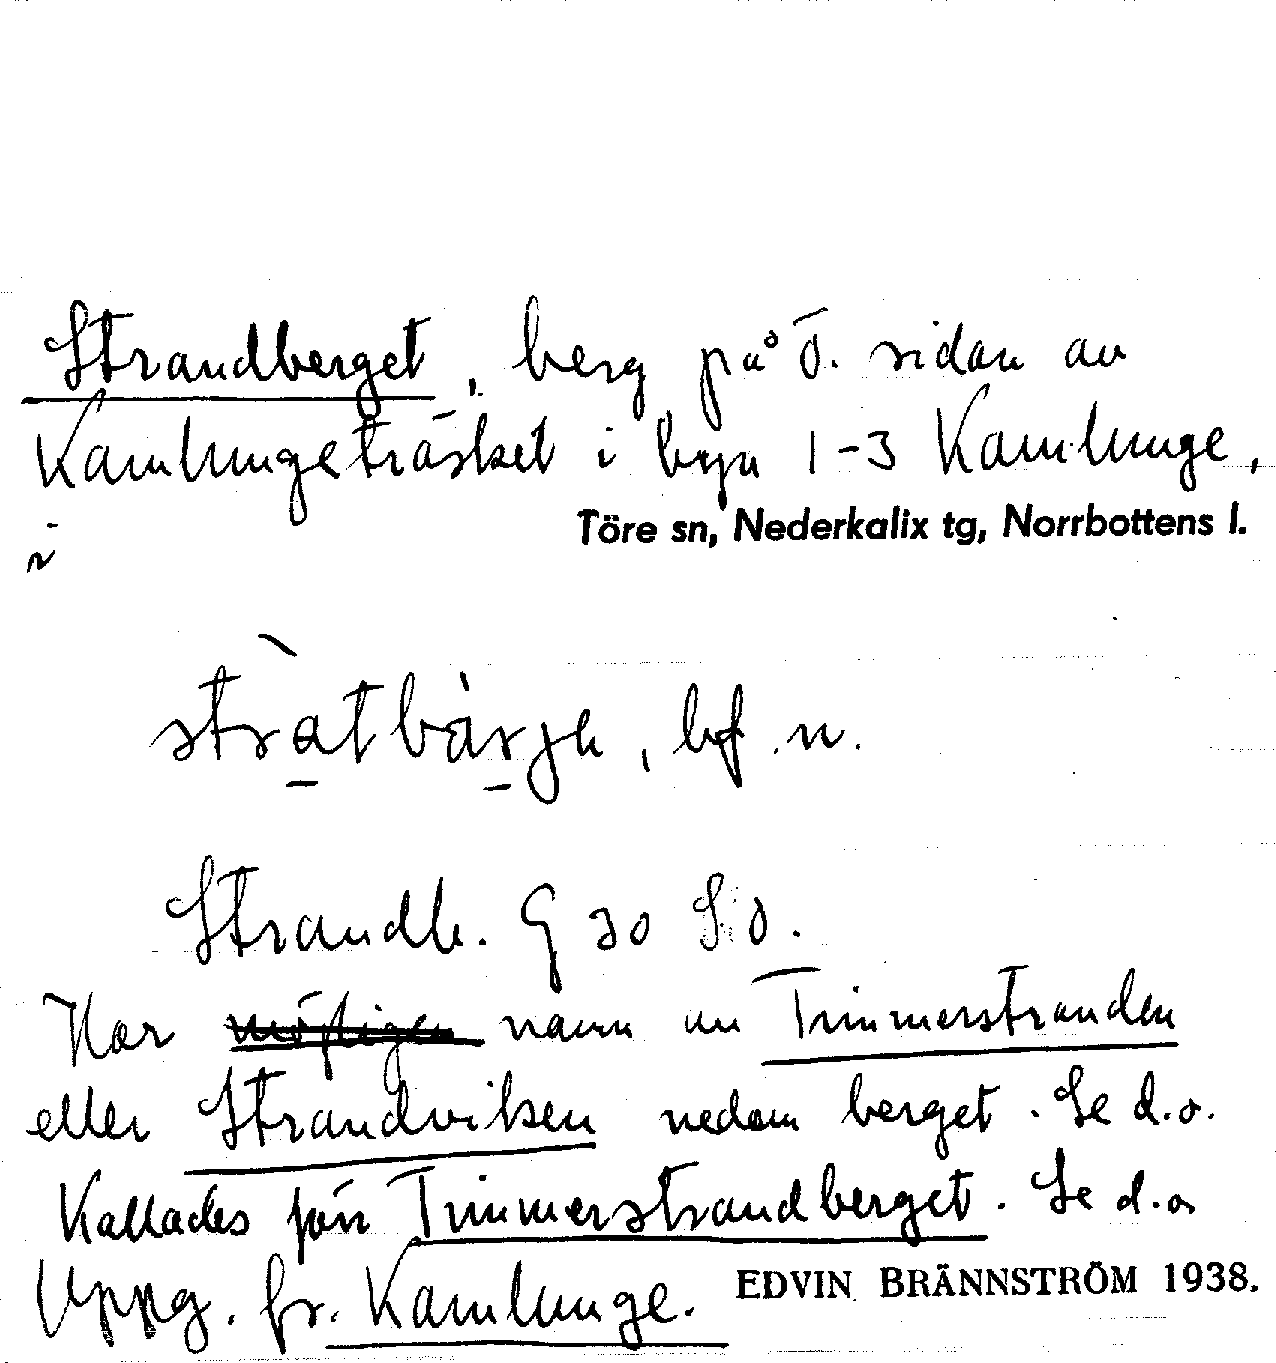 Strandberget, berg på ö. sidan av
Kamlungeträsket i byn 1-3 Kamlunge,
i Töre sn, Nederkalix tg, Norrbottens l.
bf. n.
Strandb. G 30 S.O.
Har namn av Timmerstranden
eller Strandviken nedom berget. Se d.o.
Kallades förr Timmerstrandberget. Se d.o
Uppg. fr. Kamlunge. EDVIN BRÄNNSTRÖM 1938.